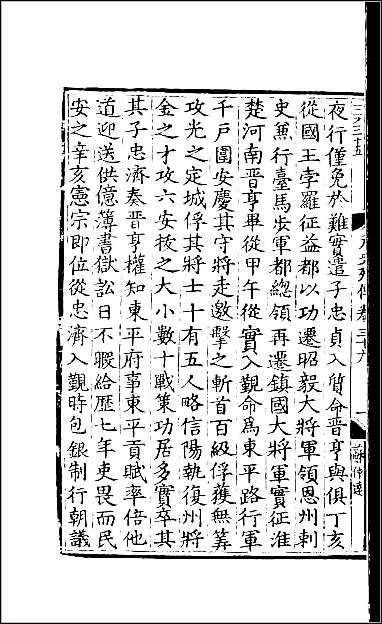 夜行僅免於難實遣子忠貞入質命晉亨與俱丁亥
從國王孛羅征益都以功遷昭毅大將軍領恩州刺
史兼行臺馬步軍都總領再遷鎮國大將軍實征淮
楚河南晉亨畢從甲午從實入覲命爲東平路行軍
千戸圍安慶其守將走邀擊之斬首百級俘獲無筭
攻光之定城俘其將士十有五人略信陽執復州將
金之才攻六安拔之大小數十戰策功居多實卒其
其子忠濟奏晉亨權知東平府事東平貢賦率倍他
道迎送供億簿書獄訟日不暇給歷七年吏畏而民
安之辛亥憲宗即位從忠濟入覲時包銀制行朝議